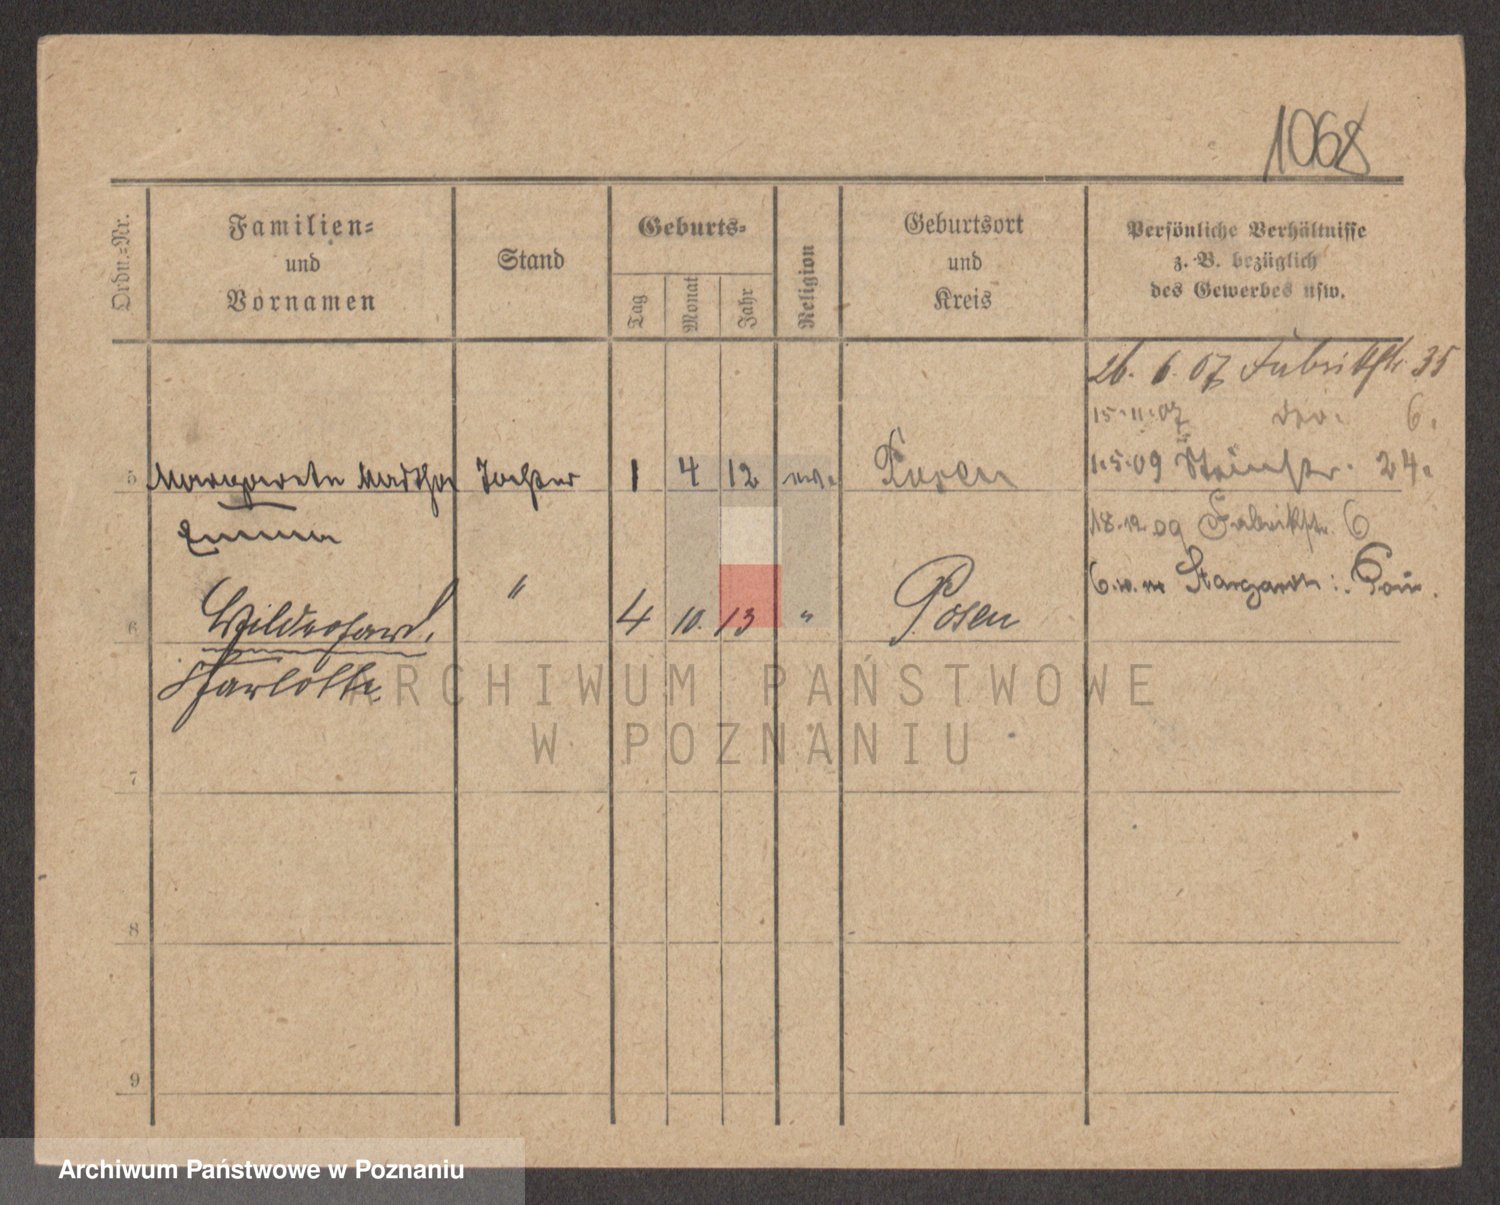 1068
Ordn.-Nr.
Familien-
und
Vornamen
Stand
Geburts-
Tag
Monat
Jahr
Religion
Geburtsort
und
Kreis
Persönliche Verhältnisse
z. B. bezüglich
des Gewerbes usw.
26. 6. 07 Fabrikstr. 35
15.11.07 do. 6.
5 Margarete Martha Tochter 1 4 12 ev. Posen 1.5.09 24.
Emma
18.12.09 Fabrikstr. 6
6 " 4 10. 13 " Posen Stargard i. Pom.
Charlotte
ARCHIWUM PAŃSTWOWE
W POZNANIU
7
8
9
Archiwum Państwowe w Poznaniu